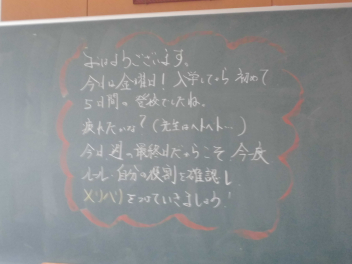 おはようございます。
今日は金曜日！入学してから初めて
5日間の登校でしたね。
疲れたかな？（先生はヘトヘト…）
今日週の最終日だからこそ今度
ルール・自分の役割を確認し
メリハリをつけていきましょう！